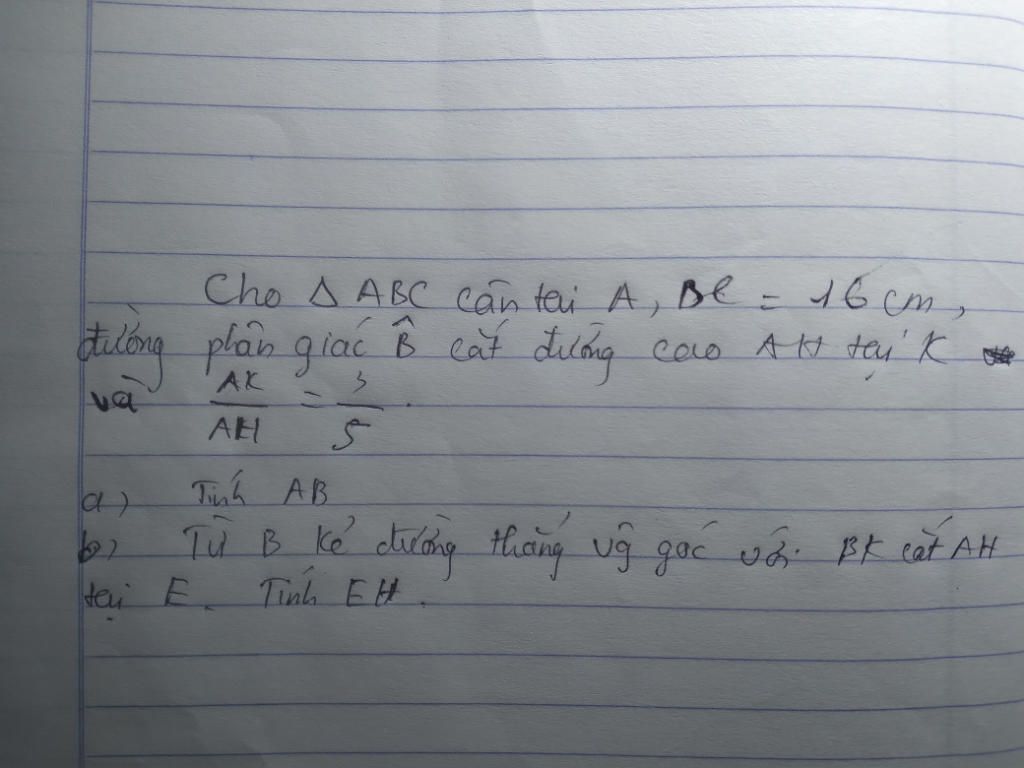 Cho Δ ABC cân tại A, BC = 16 cm,
đường phân giác B̂ cắt đường cao AH tại K
và AK/AH = 3/5.
a) Tính AB
b) Từ B kẻ đường thẳng vg góc với BK cắt AH
tại E. Tính EH.